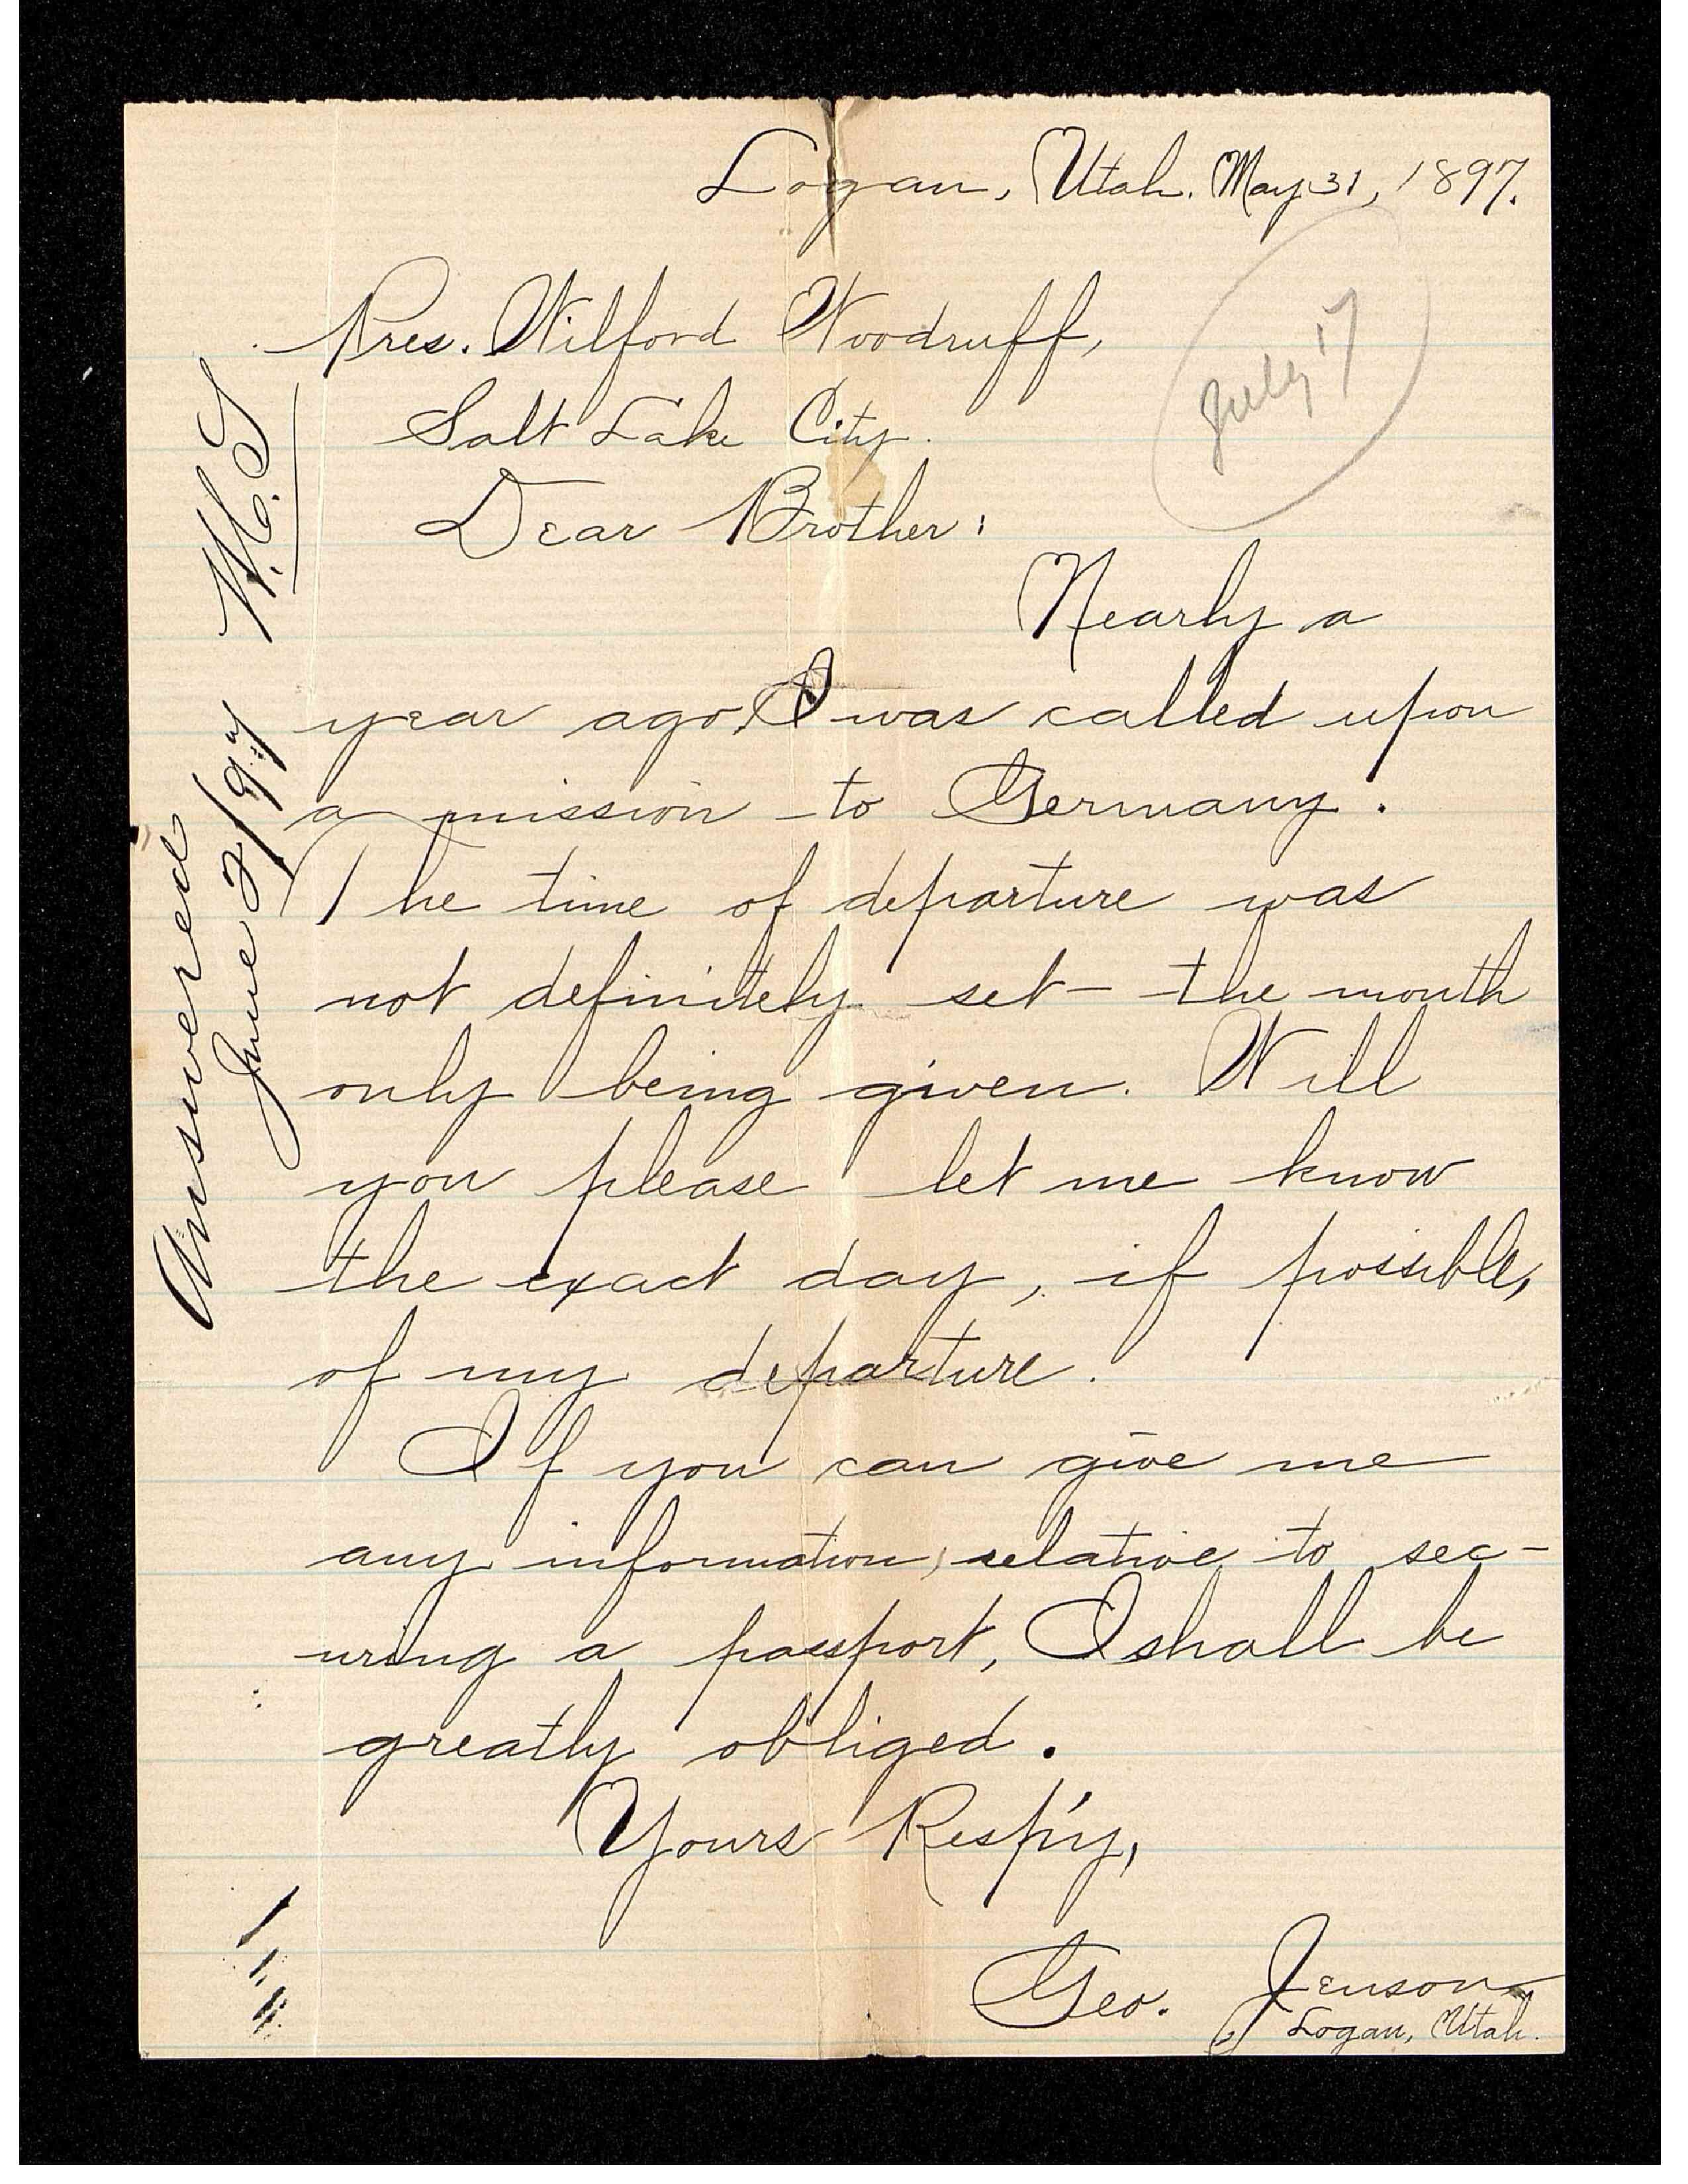 Logan, Utah. May 31, 1897.
July 17
Pres. Wilford Woodruff,
Salt Lake City.
Dear Brother:
Nearly a
year ago, I was called upon
a mission to Germany.
The time of departure was
not definitely set - the month
only being given. Will
you please let me know
the exact day, if possible,
of my departure.
If you can give me
any information, relative to sec-
uring a passport, I shall be
greatly obliged.
Yours Resp'y,
Geo. Jenson
Logan, Utah.
Answered
June 2/97